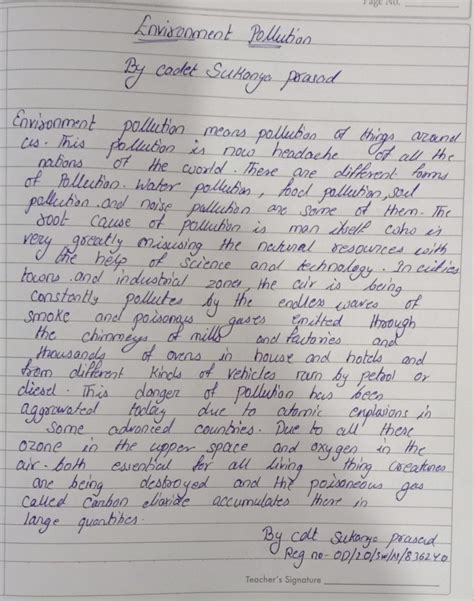 Page No.
Environment Pollution
By cadet Sukanya prasad
Environment pollution means pollution of things around
us. This pollution is now headache of all the
nations of the world. There are different forms
of Pollution. Water pollution, food pollution, soil
pollution and noise pollution are some of them. The
root cause of pollution is man itself who is
very greatly misusing the natural resources with
the help of science and technology. In cities
towns and industrial zones, the air is being
constantly pollutes by the endless waves of
smoke and poisonous gases emitted through
the chimneys of mills and factories and
thousands of ovens in house and hotels and
from different kinds of vehicles run by petrol or
diesel. This danger of pollution has been
aggrawated today due to atomic explosions in
some advanced countries. Due to all these
ozone in the upper space and oxygen in the
air. both essential for all living thing creatures
are being destroyed and the poisoneous gas
called carbon dioxide accumulates there in
large quantities.
By cdt Sukanya prasad
Reg no- OD/20/SW/N/836240
Teacher's Signature